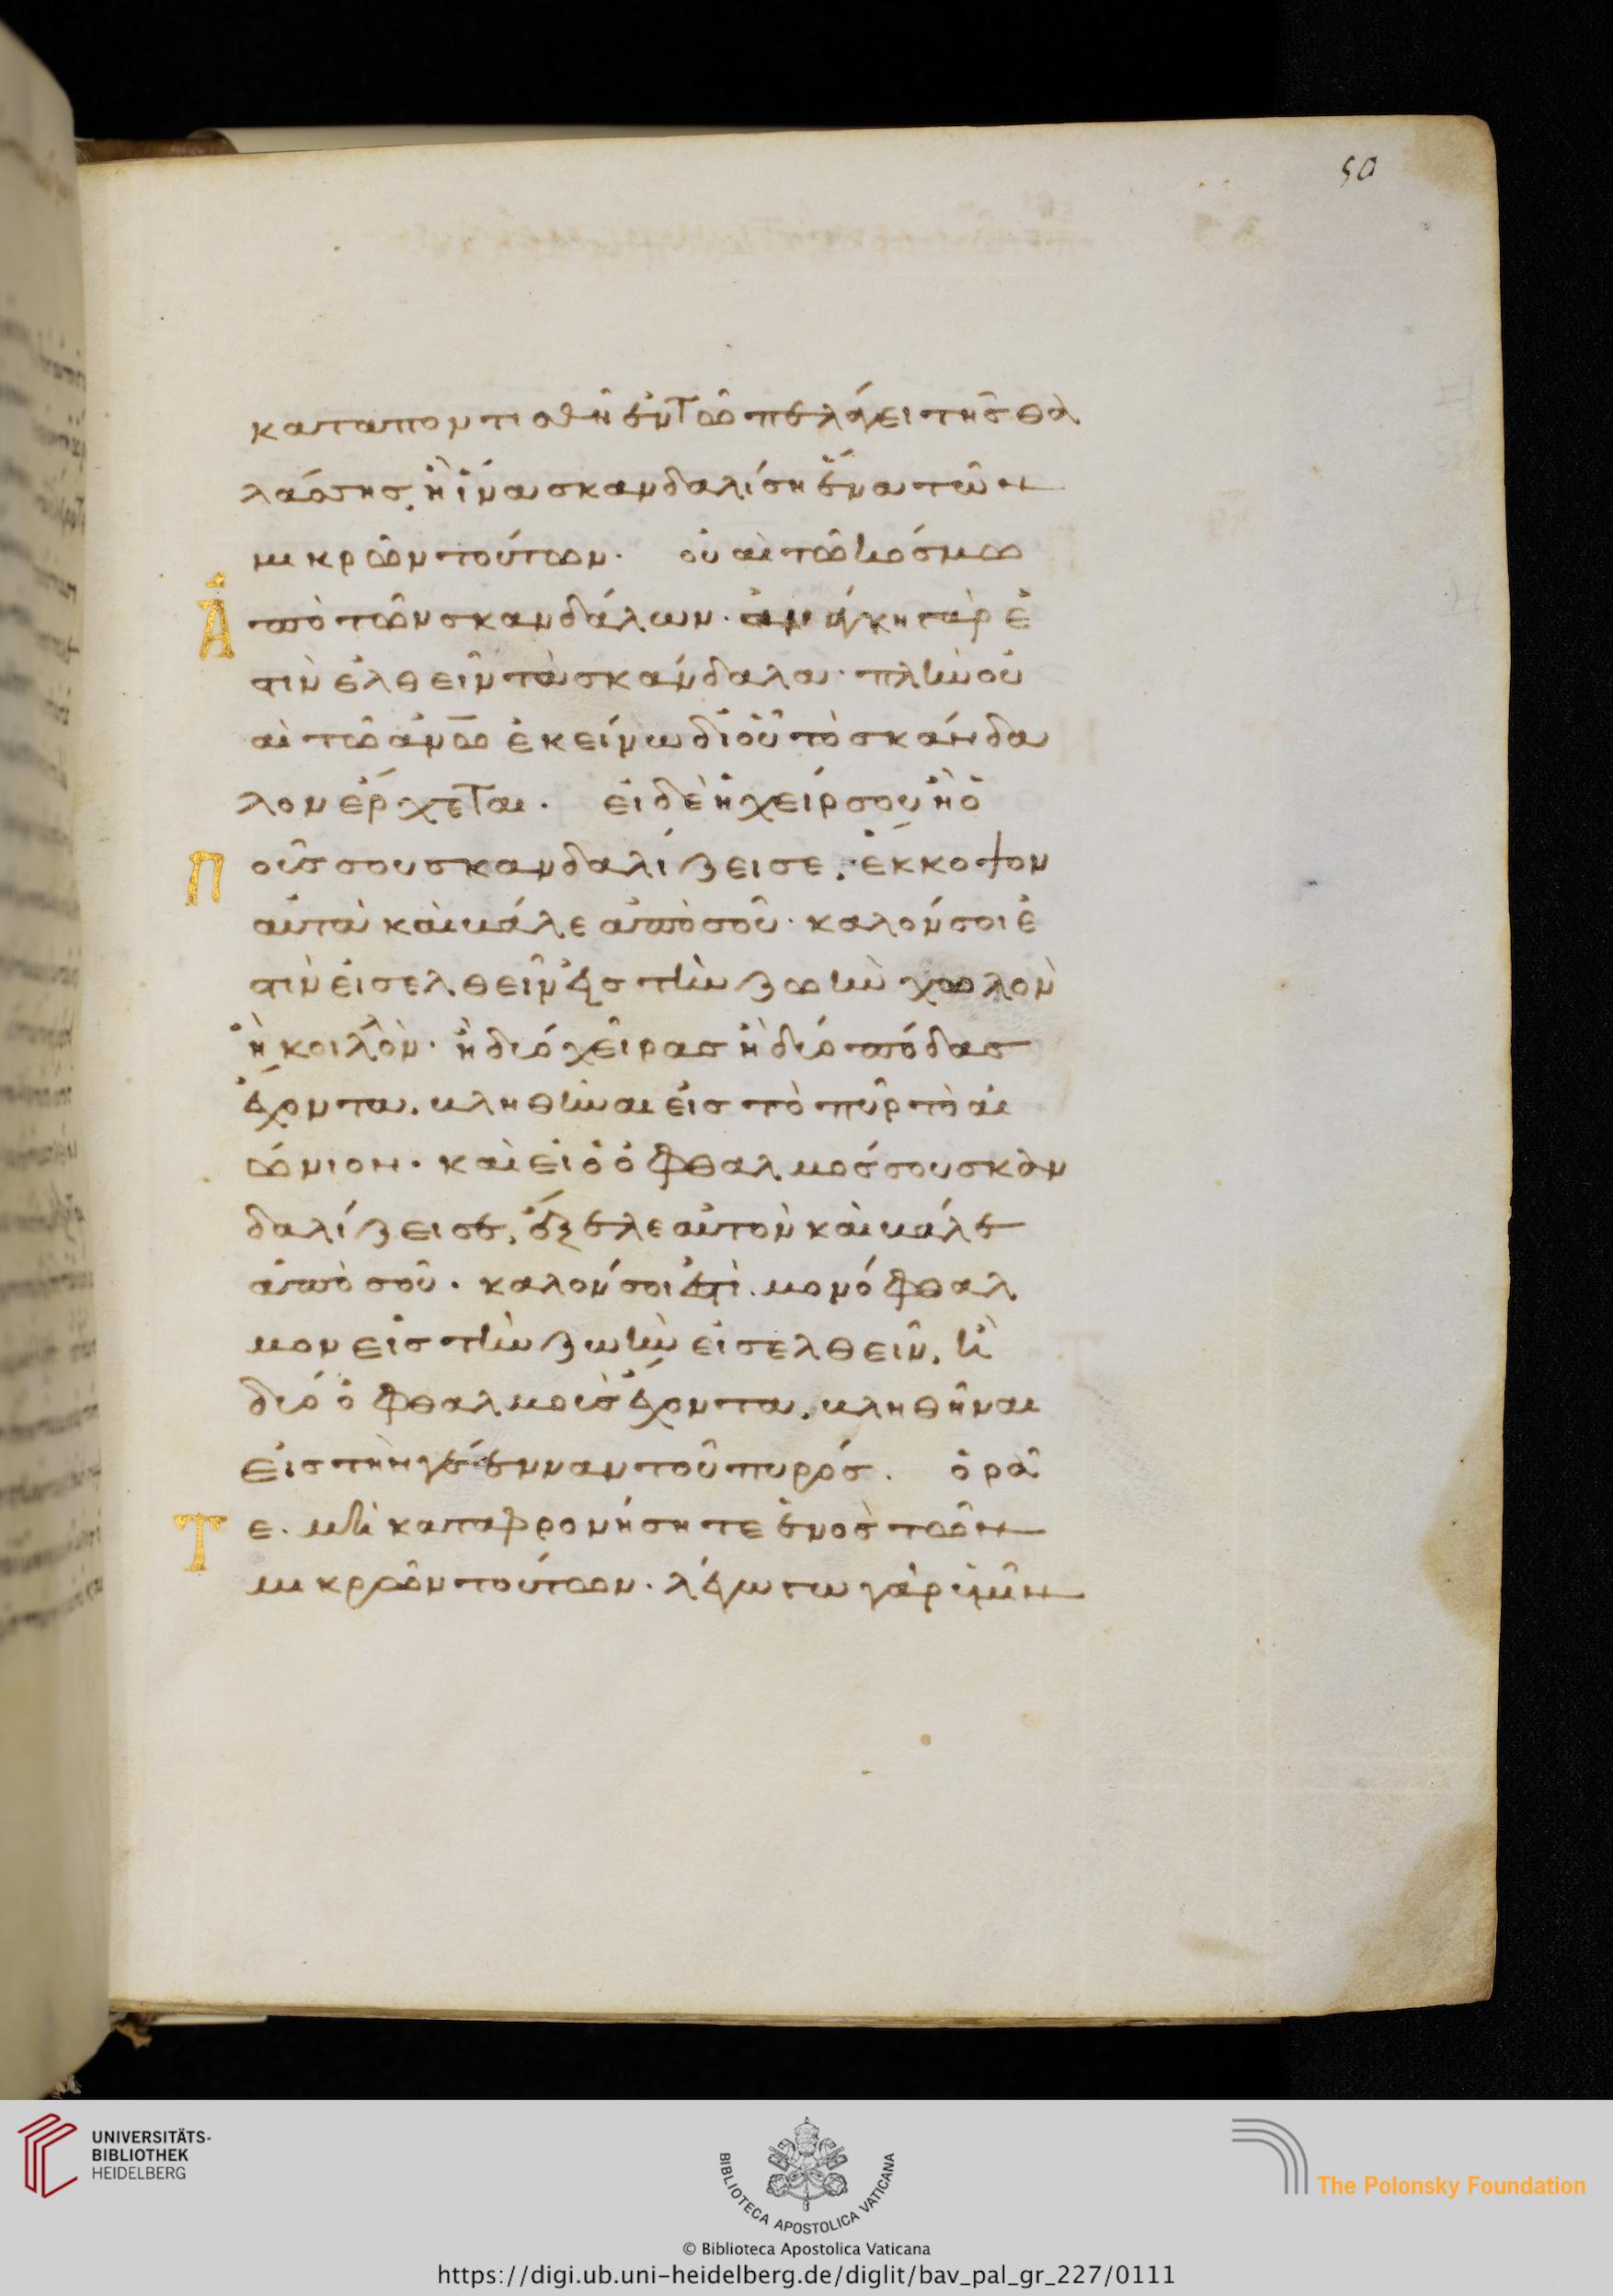 50
καταποντισθῆ ἐν τῶ πελάγει τῆς θα
λάσσης, ἢ ἵνα σκανδαλίση ἕνα τῶν
μικρῶν τούτων. οὐαὶ τῶ κόσμω
Ἀ πὸ τῶν σκανδάλων· ἀνάγκη γάρ ἐ
στιν ἐλθεῖν τὰ σκάνδαλα· πλὴν οὐ
αὶ τῶ ἀνω̅ ἐκείνω δι' οὗ τὸ σκάνδα
λον ἔρχεται. εἰ δὲ ἡ χείρ σου ἢ ὁ
Π οῦς σου σκανδαλίζει σε, ἔκκοψον
αὐτὰ καὶ βάλε ἀπὸ σοῦ· καλόν σοι ἐ
στὶν εἰσελθεῖν εἰς τὴν ζωὴν χωλὸν
ἢ κολλὸν· ἢ δύο χεῖρας ἢ δύο πόδας
ἔχοντα, βληθῆναι εἰς τὸ πῦρ τὸ αἰ
ώνιον. καὶ εἰ ὁ ὀφθαλμός σου σκαν
δαλίζει σε, ἔξελε αὐτὸν καὶ βάλε
ἀπὸ σοῦ. καλόν σοι ἐστὶ μονόφθαλ
μον εἰς τὴν ζωὴν εἰσελθεῖν, ἢ
δύο ὀφθαλμοὺς ἔχοντα, βληθῆναι
εἰς τὴν γέενναν τοῦ πυρός. ὁρᾶ
Τ ε. μὴ καταφρονήσητε ἑνὸς τῶν
μικρῶν τούτων. λέγω γὰρ ὑμῖν
UNIVERSITÄTS-
BIBLIOTHEK
HEIDELBERG
BIBLIOTECA APOSTOLICA VATICANA
The Polonsky Foundation
© Biblioteca Apostolica Vaticana
https://digi.ub.uni-heidelberg.de/diglit/bav_pal_gr_227/0111